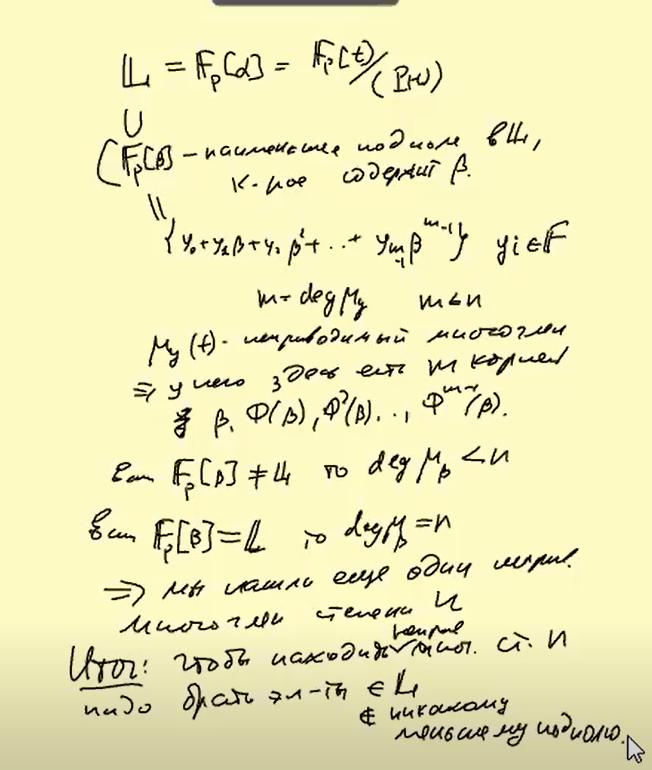 𝕃 = 𝔽_p[α] = 𝔽_p[t]/(P(t))
∪
(𝔽_p[β] – наименьшее подполе в 𝕃,
к-рое содержит β.
||
{y₀+y₁β+y₂β²+...+y_{m-1}β^{m-1}} y_i ∈ 𝔽
m = deg μ_y m ≤ n
μ_y(t) - неприводимый многочлен
⇒ у него здесь есть m корней
β, Φ(β), Φ²(β)..., Φ^{m-1}(β).
Если 𝔽_p[β] ≠ 𝕃 то deg μ_β < n
Если 𝔽_p[β] = 𝕃 то deg μ_β = n
⇒ мы нашли еще один неприв.
многочлен степени n
Итог: чтобы находить неприв. мног. ст. n
надо брать эл-ты ∈ 𝕃
∉ никакому
меньшему подполю.